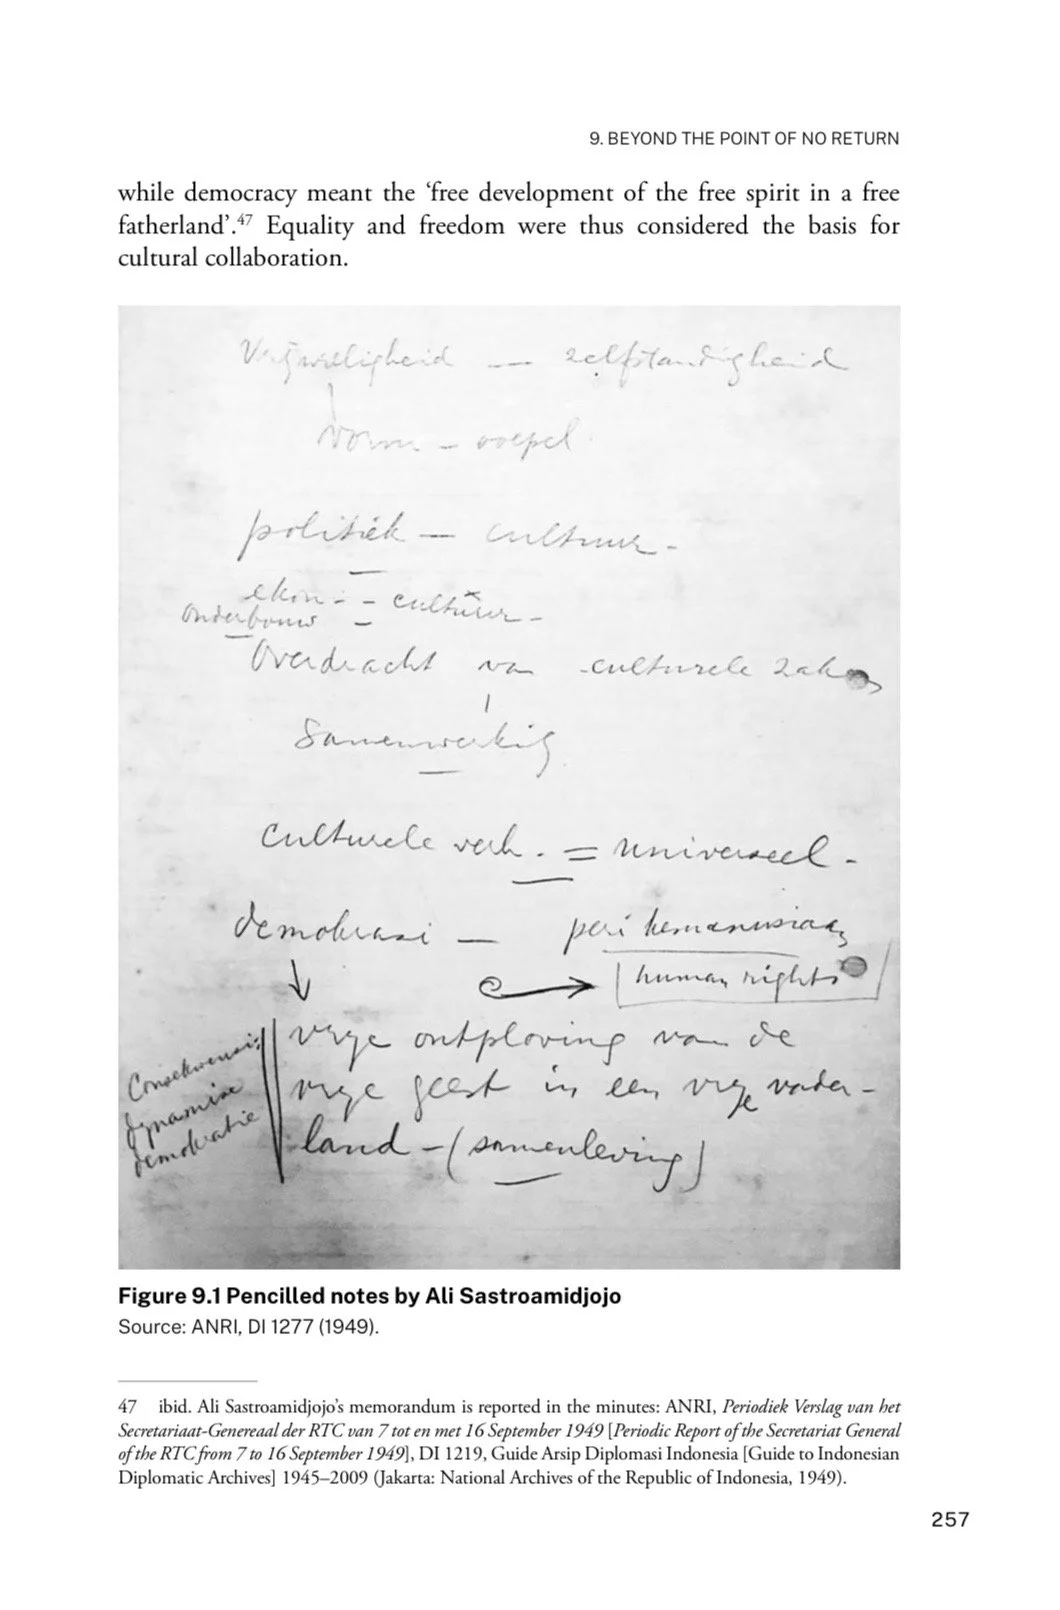 9. BEYOND THE POINT OF NO RETURN
while democracy meant the ‘free development of the free spirit in a free
fatherland’.47 Equality and freedom were thus considered the basis for
cultural collaboration.
Vrijwilligheid — zelfstandigheid
vorm — soepel
politiek — cultuur -
ekon - - cultuur -
Onderbouw
Overdracht van culturele zaken
Samenwerking
Culturele verh. = universeel -
demokrasi — peri kemanusiaan
human rights
vrije ontplooiing van de
vrije geest in een vrije vader-
land - (samenleving)
dynamise
demokratie
Figure 9.1 Pencilled notes by Ali Sastroamidjojo
Source: ANRI, DI 1277 (1949).
47 ibid. Ali Sastroamidjojo’s memorandum is reported in the minutes: ANRI, Periodiek Verslag van het
Secretariaat-Genereaal der RTC van 7 tot en met 16 September 1949 [Periodic Report of the Secretariat General
of the RTC from 7 to 16 September 1949], DI 1219, Guide Arsip Diplomasi Indonesia [Guide to Indonesian
Diplomatic Archives] 1945–2009 (Jakarta: National Archives of the Republic of Indonesia, 1949).
257